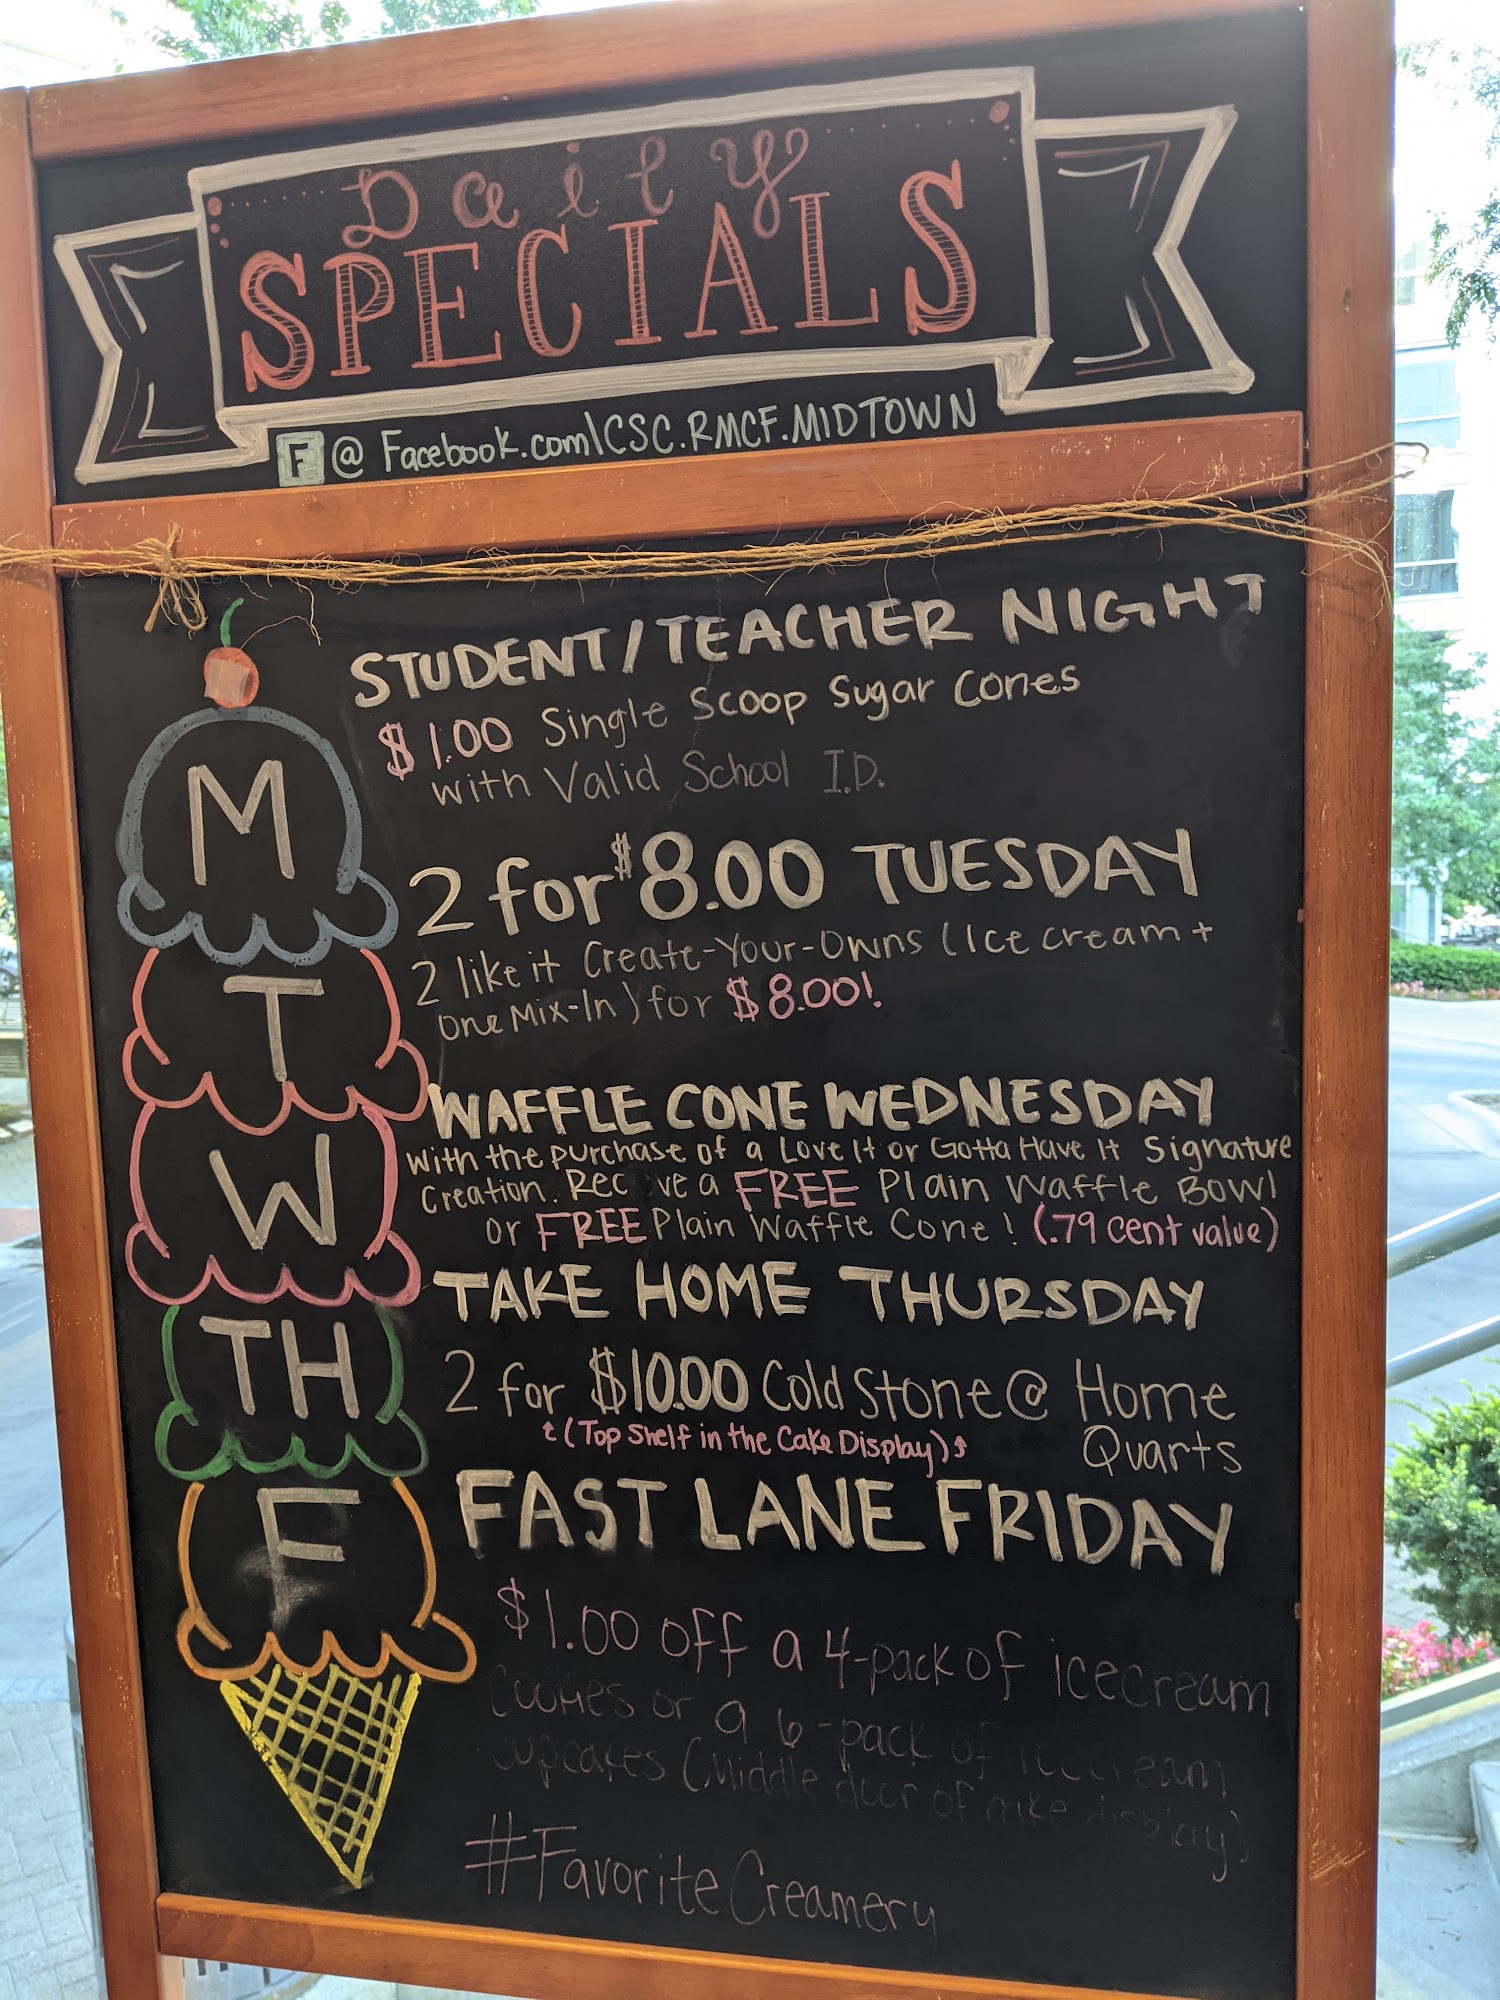 Daily
SPECIALS
F @ Facebook.com\CSC.RMCF.MIDTOWN
STUDENT/TEACHER NIGHT
$1.00 Single Scoop Sugar Cones
with Valid School I.D.
M
2 for $8.00 TUESDAY
2 like it Create-Your-Owns (Ice cream +
One Mix-In) for $8.00!
T
WAFFLE CONE WEDNESDAY
With the purchase of a Love It or Gotta Have It Signature
Creation. Rec ve a FREE Plain Waffle Bowl
or FREE Plain Waffle Cone! (.79 cent value)
W
TAKE HOME THURSDAY
2 for $10.00 Cold Stone @ Home
(Top Shelf in the Cake Display) Quarts
TH
FAST LANE FRIDAY
F
$1.00 off a 4-pack of icecream
cookies or a 6-pack of icecream
cupcakes (Middle door of cake display)
#FavoriteCreamery